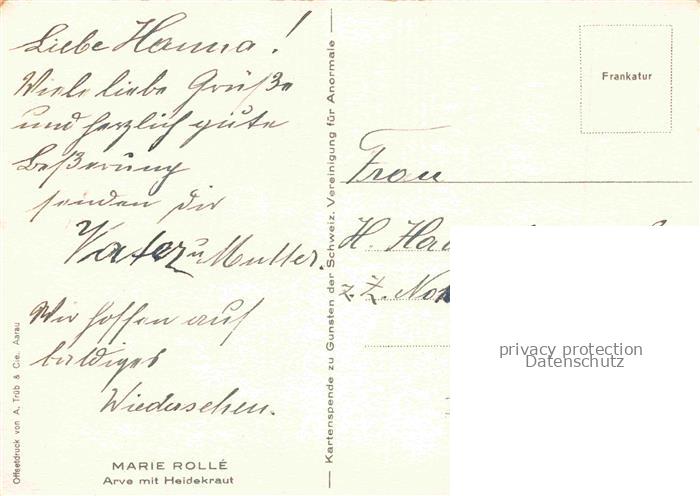 Liebe Hanna!
Viele liebe Grüße
und herzlich gute
Beßerung
senden dir
Vater u. Mutter.
Wir hoffen auf
baldiges
Wiedersehen.
MARIE ROLLÉ
Arve mit Heidekraut
Offsetdruck von A. Trüb & Cie. Aarau
Kartenspende zu Gunsten der Schweiz. Vereinigung für Anormale
Frankatur
Frau
H.
z. Z.
privacy protection
Datenschutz